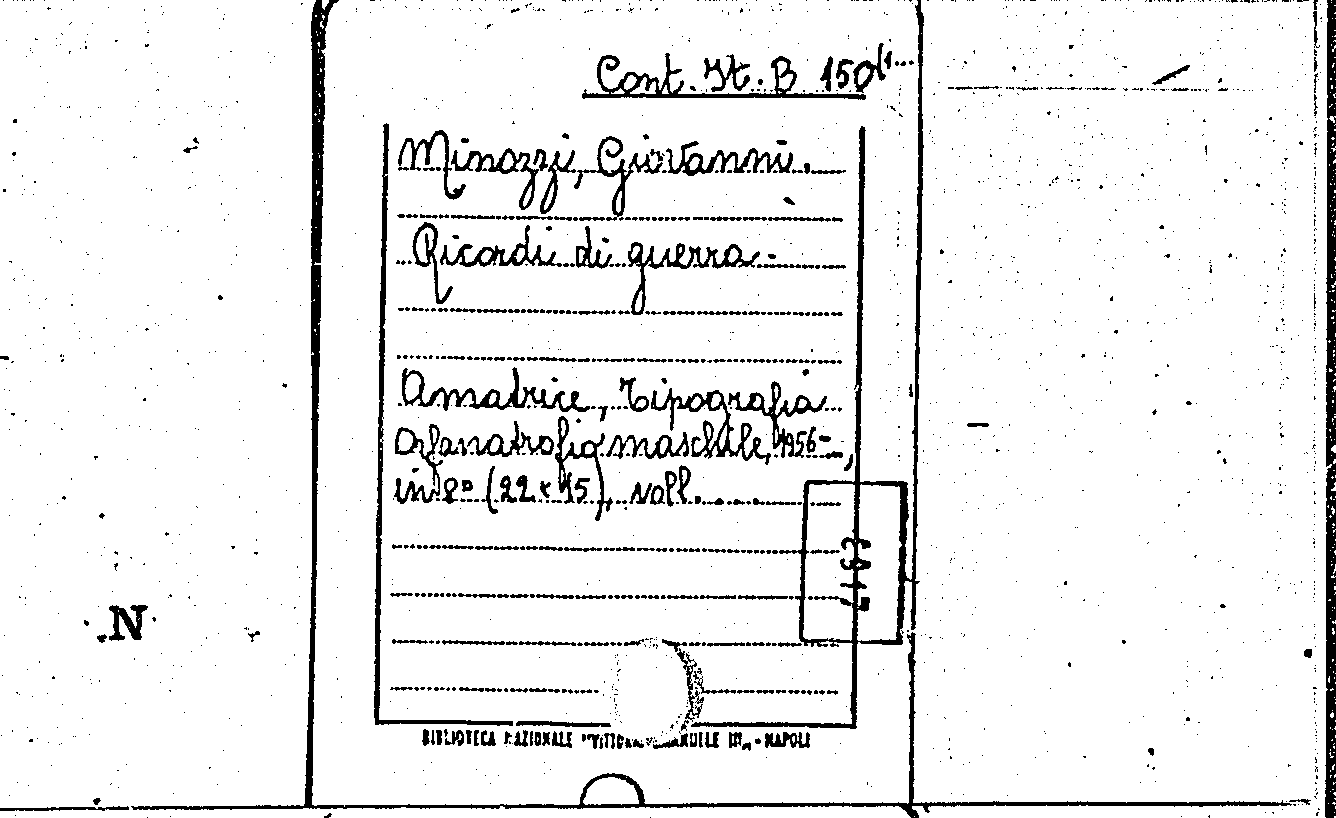 Cont. It. B 150(1...
Minozzi, Giovanni.
Ricordi di guerra.
Amatrice, Tipografia
Orfanotrofio maschile, 1956-,
in 8° (22 x 15), voll. ....
N
BIBLIOTECA NAZIONALE "VITTORIO EMANUELE III" - NAPOLI